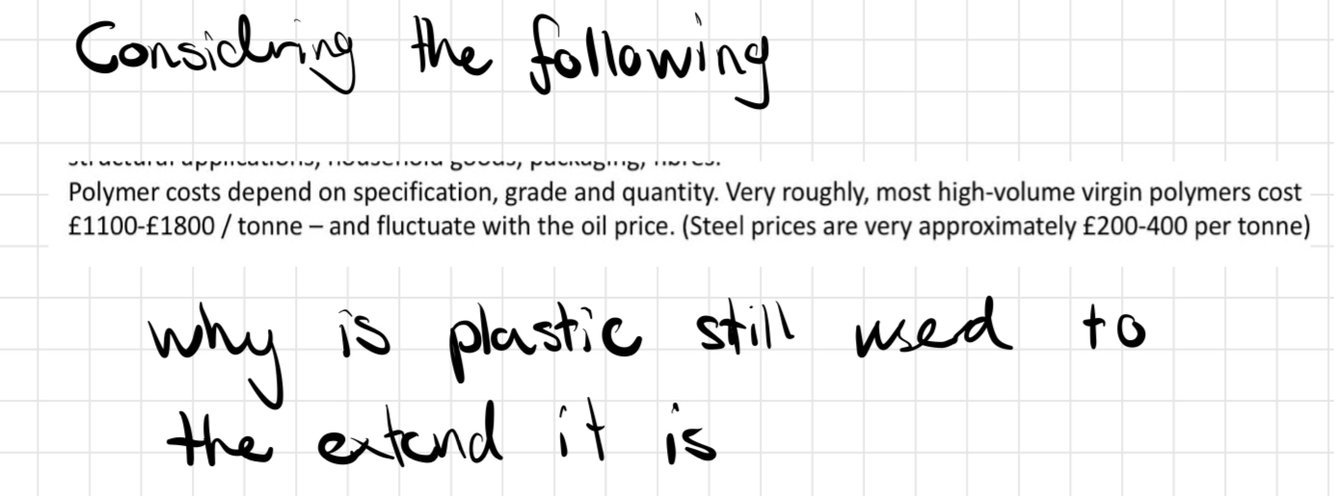 Considring the following
structural applications, household goods, packaging, fibres.
Polymer costs depend on specification, grade and quantity. Very roughly, most high-volume virgin polymers cost
£1100-£1800 / tonne – and fluctuate with the oil price. (Steel prices are very approximately £200-400 per tonne)
why is plastic still used to
the extend it is